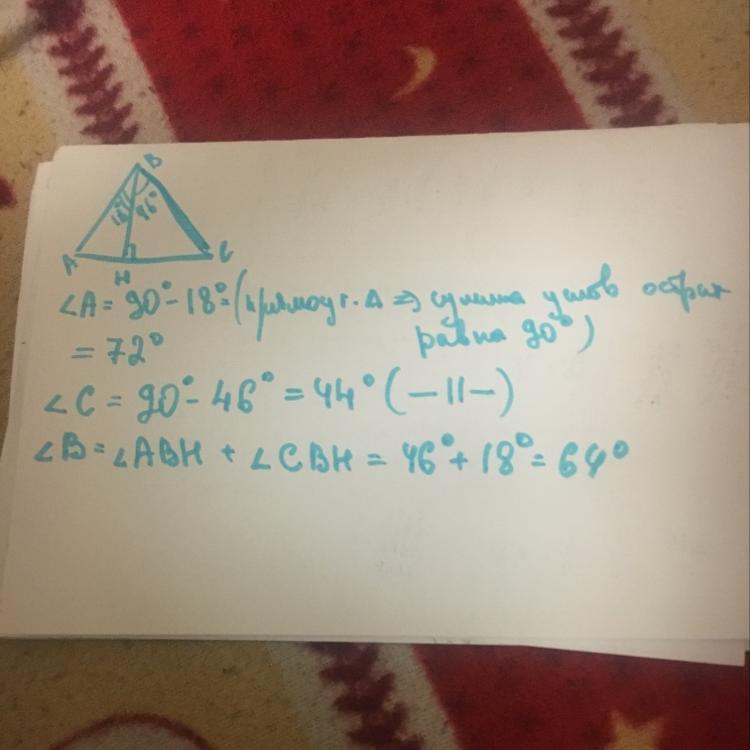 B
18° 46°
A H C
∠A = 90° - 18° = (прямоуг. Δ ⇒ сумма углов острых
= 72° равна 90°)
∠C = 90° - 46° = 44° (–11–)
∠B = ∠ABH + ∠CBH = 46° + 18° = 64°